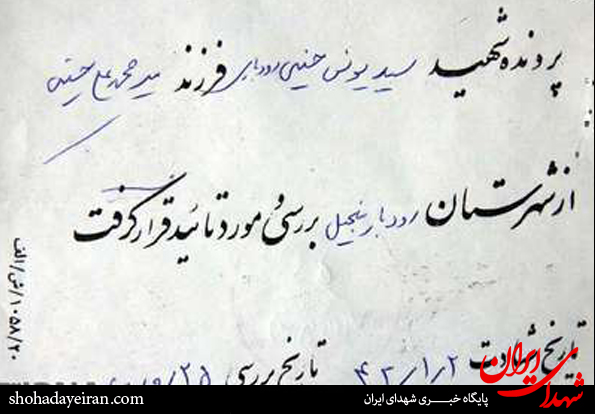 پرونده شهید سید یونس حسینی رودباری فرزند سید محمد علی حسینی
از شهرستان رودبار منجیل بررسی و مورد تائید قرار گرفت
تاریخ شهادت ۴۲/۱/۲ تاریخ بررسی
۱۰۵۸/۲۰/ش/الف
شهدای ایران
shohadayeiran.com پایگاه خبری شهدای ایران